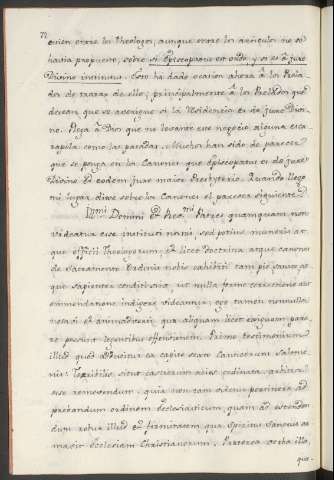 quien entre los Theologos, aunque entre los articulos no se
havia propuesto, sobre si Episcopatus est ordo, y si es à jure
Divino institutus. Esto ha dado ocasion ahora à los
de tratar de ello; principalmente à los Prelados que
desean que se averigue si la Residencia es de jure Divi-
no. Plega à Dios que no levante este negocio alguna
como las pasadas. Muchos han sido de parecer
que se ponga en los Canones que Episcopatus est de jure
Divino. Et eodem jure maior Presbyterio. Quando llegò
mi lugar dixe sobre los Canones el parecer siguiente.
Illmi. Domini et Rmi. Patres quamquam non
videatur esse instituti nostri, sed potius muneris at-
que officii Theologorum, et licet Doctrina atque canones
de Sacramento Ordinis nobis exhibiti tam piè
que sapienter conditi sint, ut nulla ferme correctione aut
emmendatione indigere videantur; ego tamen nonnulla
notavi et animadverti, quae aliquam licet exiguam pare-
re possint legentibus offensionem. Primo testimonium
illud quod adducitur ex capite sexto Canticorum Salomo-
nis: Terribilis sicut castrorum acies ordinata, arbitror
esse removendum, quia non tam videtur pertinere ad
probandum ordinem Ecclesiasticum, quam ad ostenden-
dum robur illud et firmitatem qua Spiritus Sanctus ar-
mavit Ecclesiam Christianorum. Praeterea verba illa,
que-